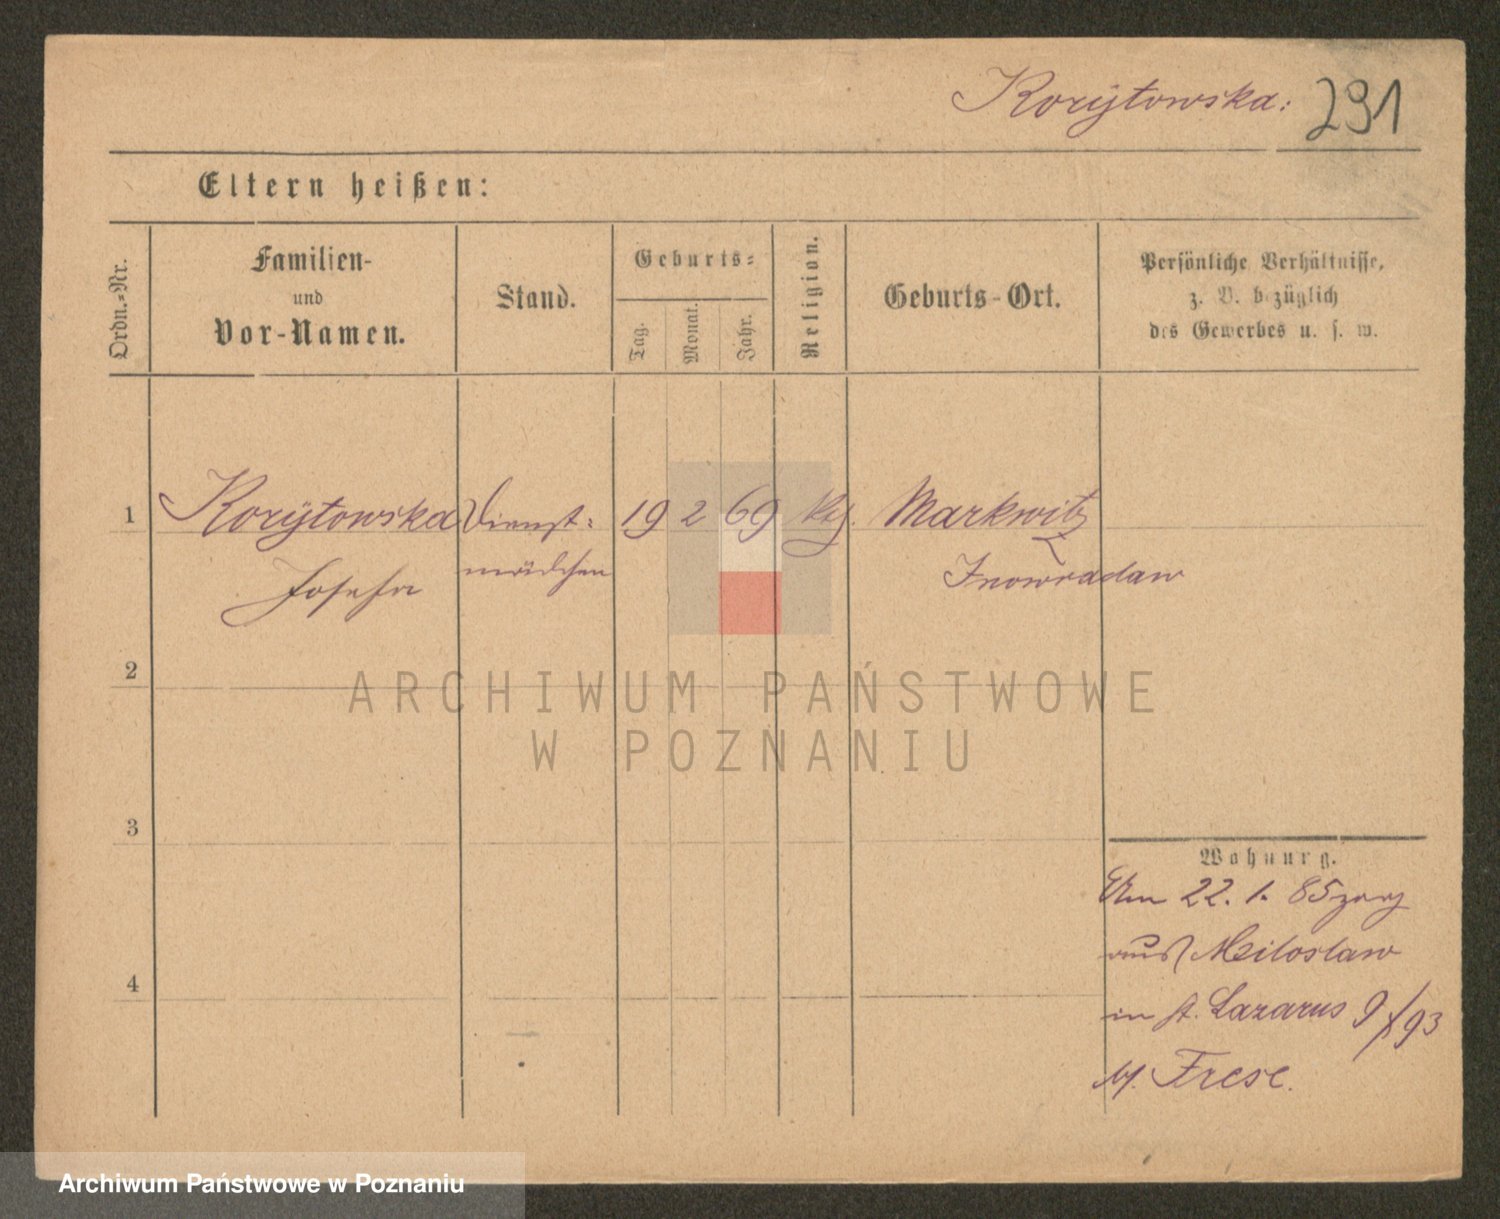 Korÿtowska: 291
Eltern heißen:
Ordn.=Nr.
Familien-
und
Vor-Namen.
Stand.
Geburts=
Tag.
Monat.
Jahr.
Religion.
Geburts-Ort.
Persönliche Verhältnisse,
z. B. bezüglich
des Gewerbes u. s. w.
1 Korÿtowska Dienst= 19 2 69 Markwitz
Josefa mädchen Inowraclaw
2
3
4
Wohnung.
Am 22. 1. 85 zog
aus Miloslaw
in St. Lazarus 9/X 93
b/. Frese.
ARCHIWUM PAŃSTWOWE
W POZNANIU
Archiwum Państwowe w Poznaniu